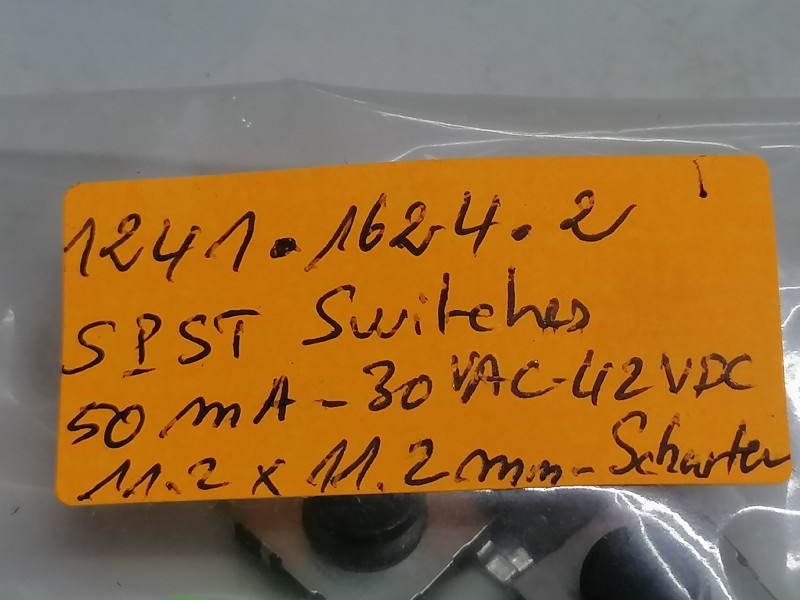 1241.1624.2
SPST Switches
50 mA - 30 VAC - 42 VDC
11.2 x 11.2 mm - Schurter